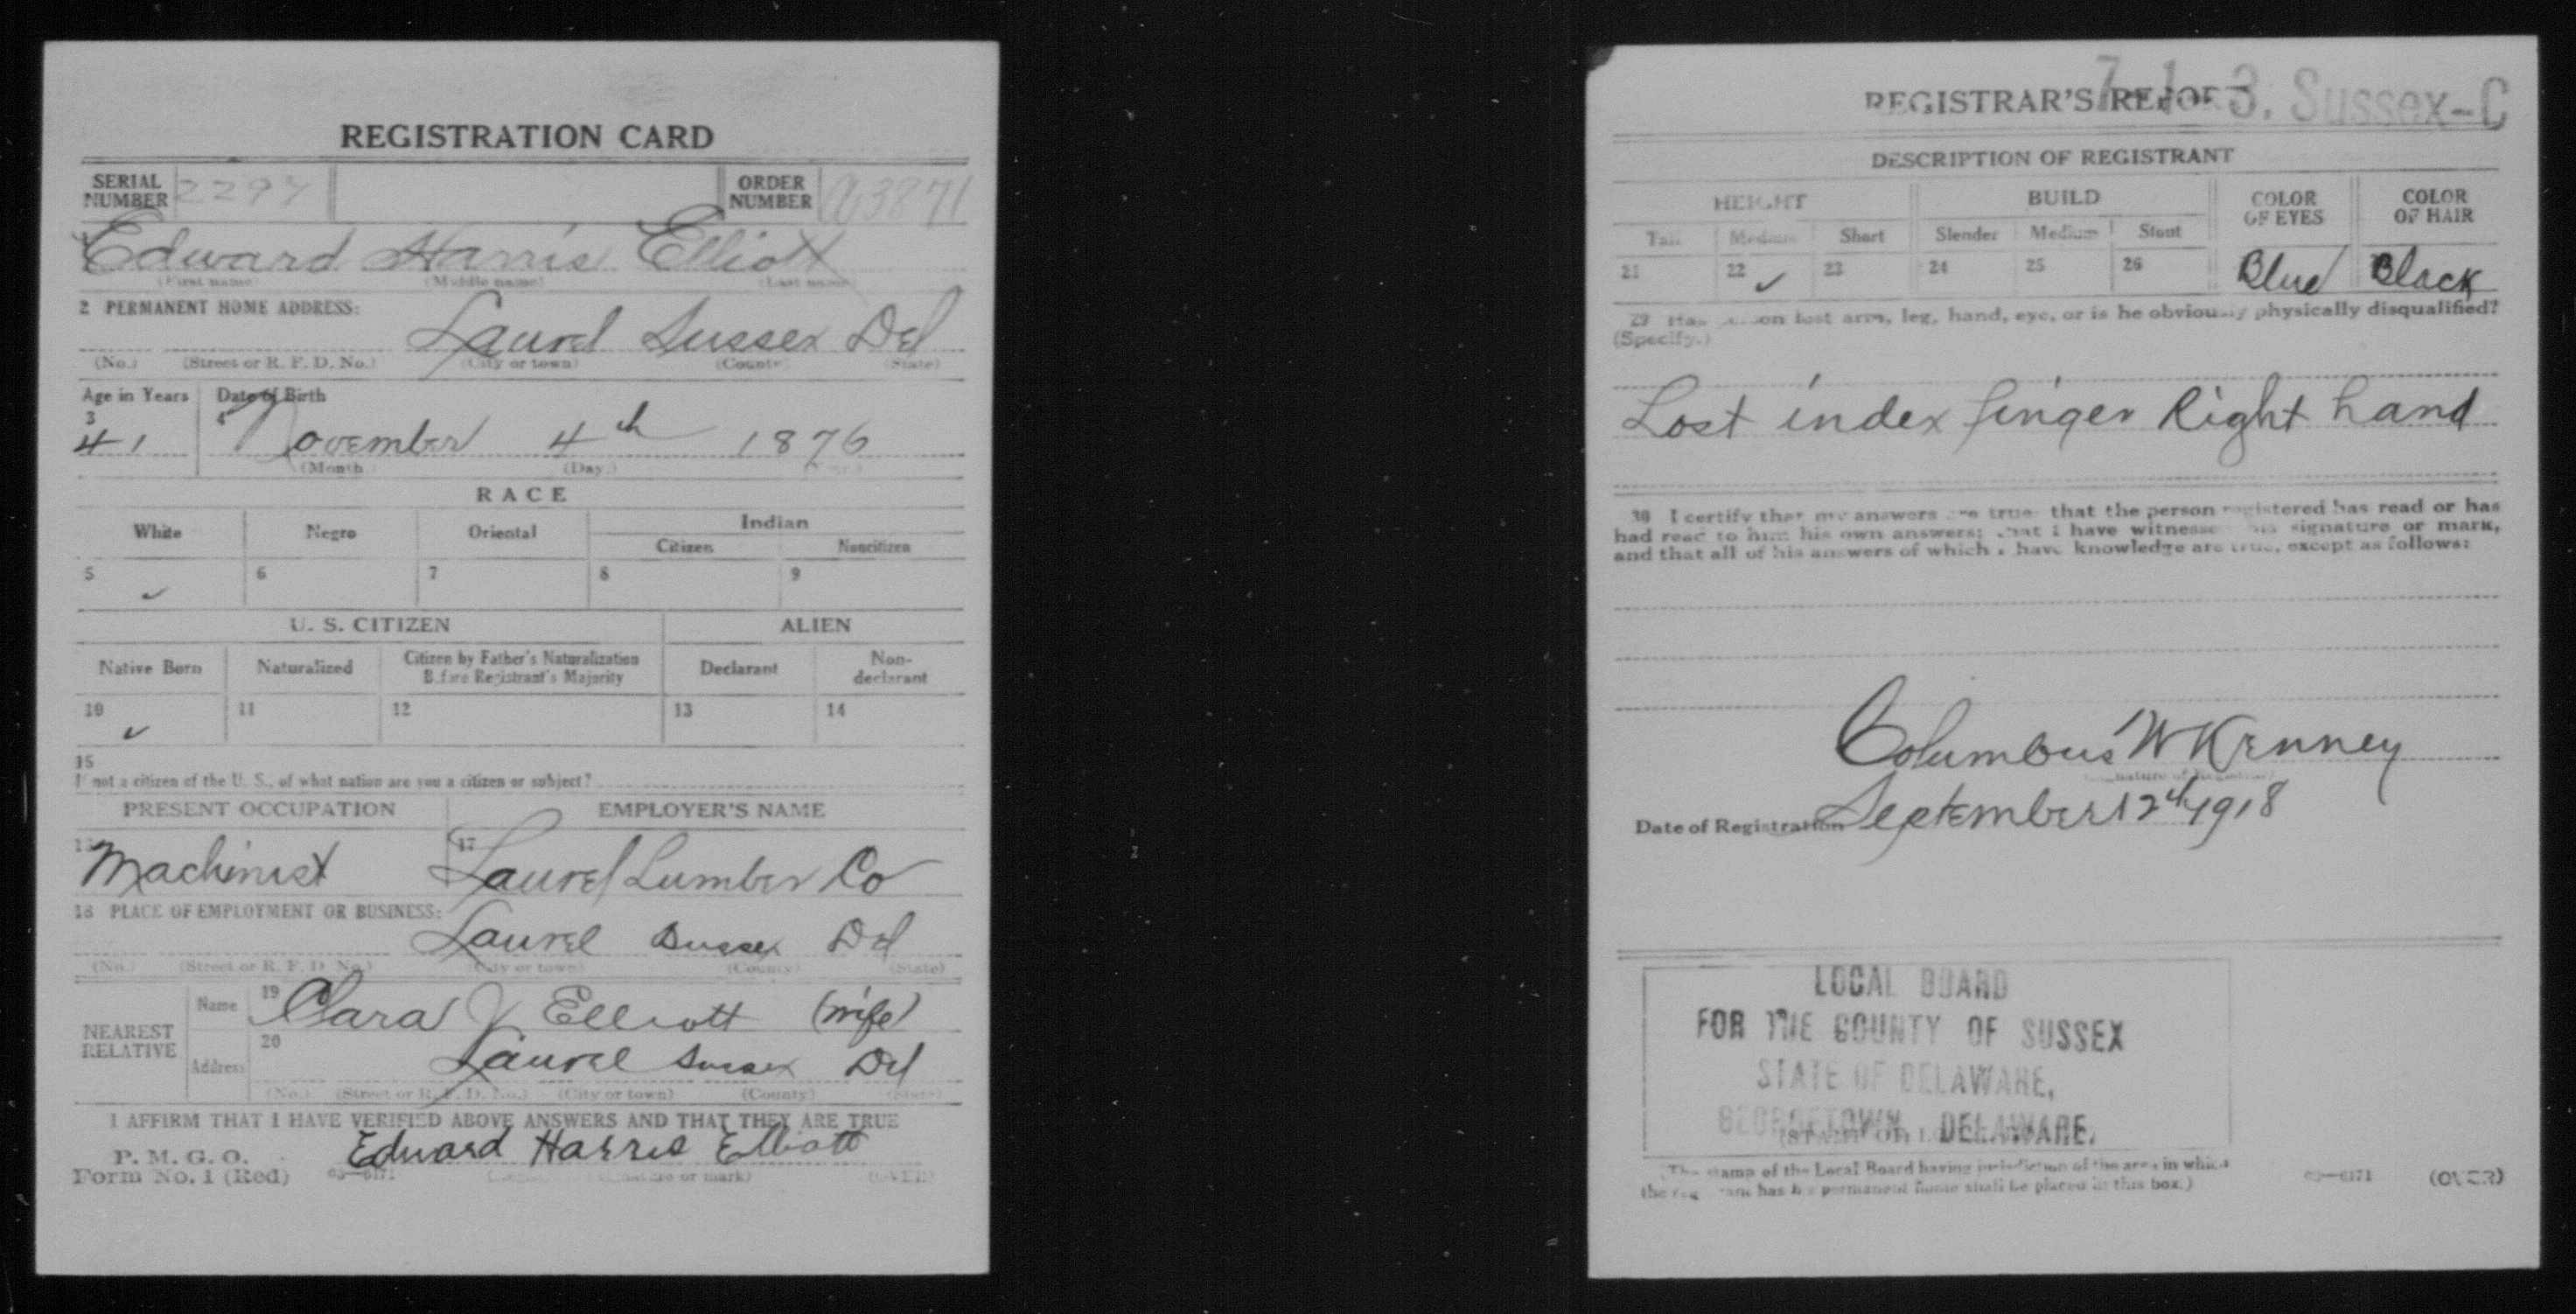 REGISTRATION CARD
SERIAL NUMBER 2297 ORDER NUMBER A3871
Edward Harris Elliott
(First name) (Middle name) (Last name)
2 PERMANENT HOME ADDRESS:
Laurel Sussex Del
(No.) (Street or R. F. D. No.) (City or town) (County) (State)
Age in Years Date of Birth
3 4
41 November 4th 1876
(Month) (Day)
RACE
White Negro Oriental Indian
Citizen Noncitizen
5 ✓ 6 7 8 9
U. S. CITIZEN ALIEN
Native Born Naturalized Citizen by Father's Naturalization Before Registrant's Majority Declarant Non-declarant
10 ✓ 11 12 13 14
15
If not a citizen of the U. S., of what nation are you a citizen or subject?
PRESENT OCCUPATION EMPLOYER'S NAME
17
Machinist Laurel Lumber Co
18 PLACE OF EMPLOYMENT OR BUSINESS:
Laurel Sussex Del
(No.) (Street or R. F. D. No.) (City or town) (County) (State)
NEAREST RELATIVE
Name 19 Clara J Elliott (wife)
Address 20 Laurel Sussex Del
(No.) (Street or R. F. D. No.) (City or town) (County) (State)
I AFFIRM THAT I HAVE VERIFIED ABOVE ANSWERS AND THAT THEY ARE TRUE
P. M. G. O.
Form No. 1 (Red) 03—6171 Edward Harris Elliott
or mark) (OVER)
REGISTRAR'S REPORT
3. Sussex-C
DESCRIPTION OF REGISTRANT
HEIGHT BUILD COLOR OF EYES COLOR OF HAIR
Tall Medium Short Slender Medium Stout
21 22 ✓ 23 24 25 26 Blue Black
29 Has person lost arm, leg, hand, eye, or is he obviously physically disqualified?
(Specify.)
Lost index finger Right hand
30 I certify that my answers are true; that the person registered has read or has
had read to him his own answers; that I have witnessed his signature or mark,
and that all of his answers of which I have knowledge are true, except as follows:
Columbus W Kenney
Date of Registration September 12th 1918
LOCAL BOARD
FOR THE COUNTY OF SUSSEX
STATE OF DELAWARE,
GEORGETOWN, DELAWARE.
(The stamp of the Local Board having jurisdiction of the area in which
the registrant has his permanent home shall be placed in this box.)
03—6171 (OVER)